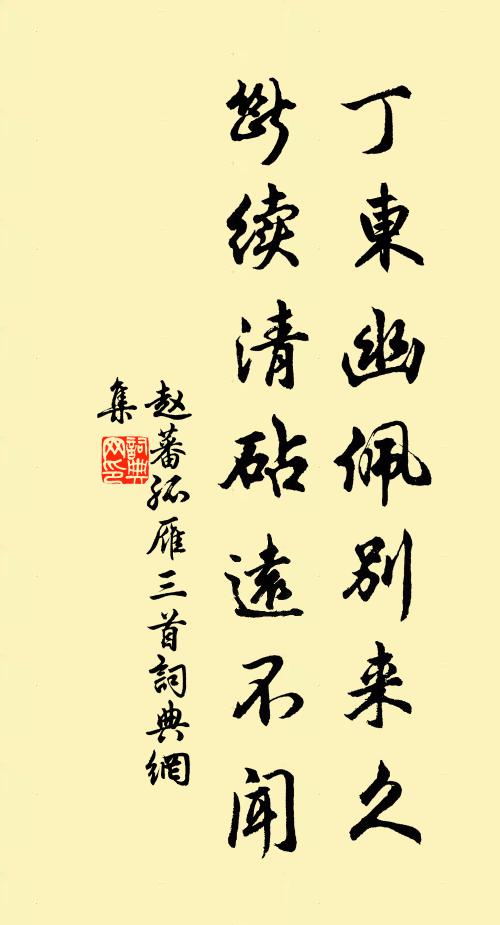 丁東幽佩别来久
斷续清砧遠不聞
赵蕃孤雁三首詞典網
集
詞典网印